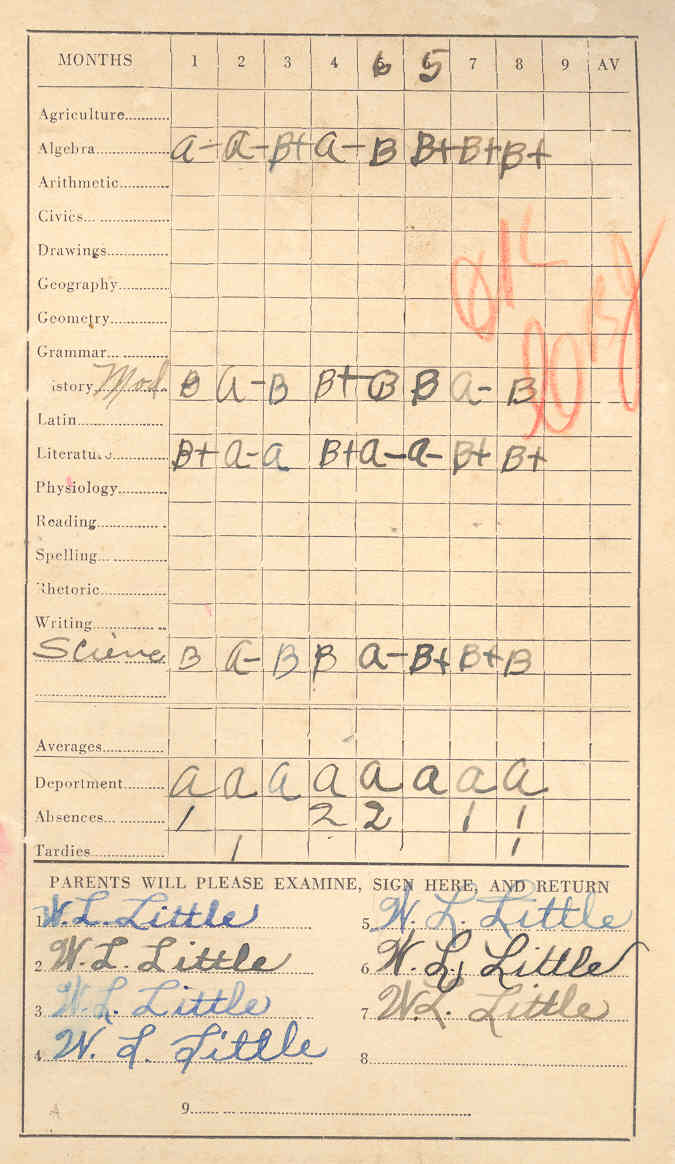 MONTHS 1 2 3 4 6 5 7 8 9 AV
Agriculture
Algebra A- A- B+ A- B B+ B+ B+
Arithmetic
Civics
Drawings
Geography
Geometry
Grammar
istory Mod. B A- B B+ B B A- B
Latin
Literature B+ A- A B+ A- A- B+ B+
Physiology
Reading
Spelling
Rhetoric
Writing
Science B A- B B A- B+ B+ B
Averages
Deportment A A A A A A A A
Absences 1 2 2 1 1
Tardies 1 1
OK
PARENTS WILL PLEASE EXAMINE, SIGN HERE, AND RETURN
1 W. L. Little
2 W. L. Little
3 W. L. Little
4 W. L. Little
5 W. L. Little
6 W. L. Little
7 W. L. Little
8
9